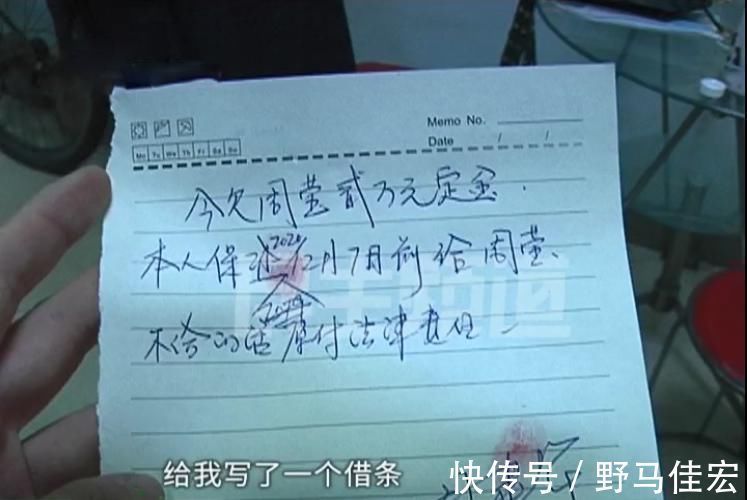 Memo No.
Date / /
Mo Tu We Th Fr Sa Su
今欠周莹贰万元定金.
本人保证2020 12月7日前给周莹.
不给的话 承付法律责任
给我写了一个借条
快传号 / 野马佳宏